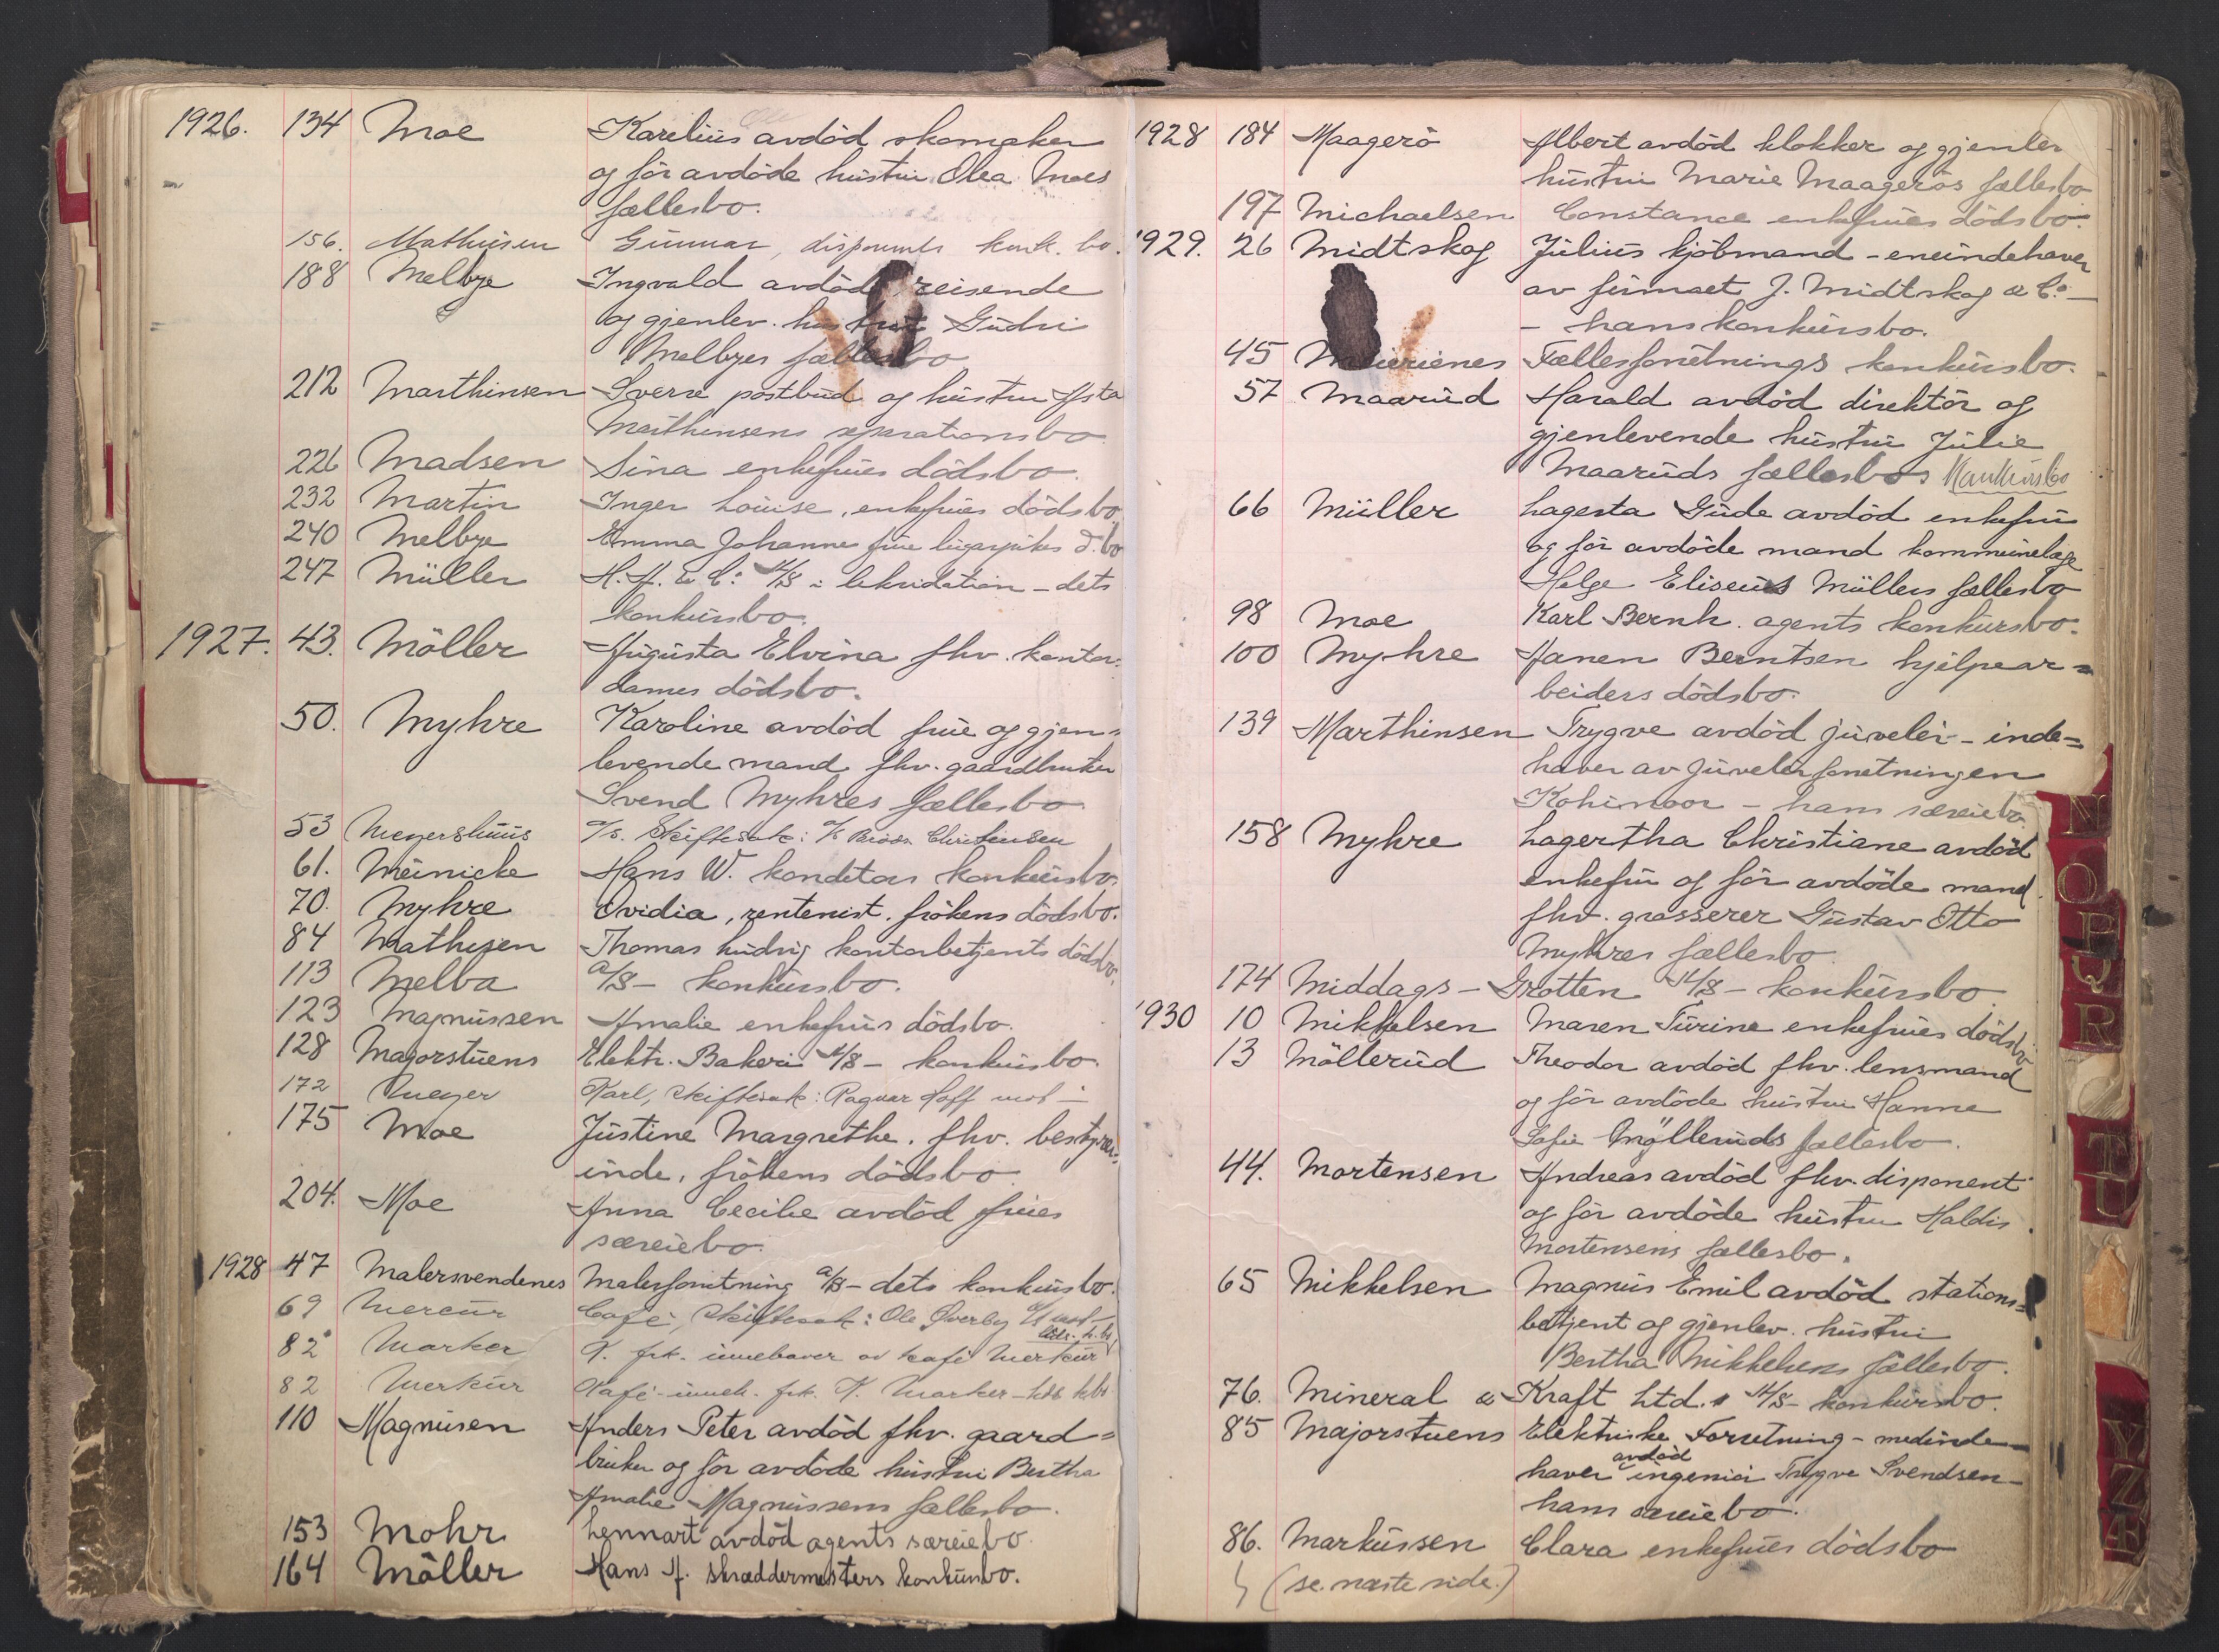 1926. 134 Moe Karelius avdöd skomaker
og för avdöde hustru Olea Moes
fællesbo.
156. Mathisen Gunnar, disponents konk. bo.
188 Melbye Ingvald avdöd reisende
og gjenlev. hustru Gudri
Melbyes fællesbo
212 Marthinsen Sverre postbud og hustru Asta
Marthinsens separationsbo
226 Madsen Sina enkefrues dödsbo.
232 Martin Inger Louise, enkefrues dödsbo
240 Melbye Emma Johanne frue d.bo
247 Müller H. A. & Co A/S i likvidation - dets
konkursbo.
1927. 43. Möller Augusta Elvina fhv. kontor=
dames dödsbo.
50. Myhre Karoline avdöd frue og gjen=
levende mand fhv. gaardbruker
Svend Myhres fællesbo
53 Meyershuus a/s. Skiftesak: Christensen
61. Meinicke Hans W. konditors konkursbo.
70. Myhre Ovidia, rentenist, frökens dödsbo.
84 Mathesen Thomas Ludvig kontorbetjents dödsbo.
113 Melba A/S - konkursbo.
123 Magnussen Amalie enkefrues dödsbo.
128 Majorstuens Elektr. Bakeri A/S - konkursbo.
172 Meyer Karl, skiftesak: Ragnar Hoff mot -
175 Moe Justine Margrethe, fhv. bestyrer=
inde, frökens dödsbo.
204. Moe Anna Cecilie avdöd frues
særeiebo.
1928 47 Malersvendenes Malerforretning A/S - dets konkursbo.
69 Mercur Café, skiftesak: Ole Øverby mot -
82 Marker K. frk. innehaver av kafé Merkur
82 Merkur Kafé - inneh. frk. K. Marker -
110 Magnusen Anders Peter avdöd fhv. gaard=
bruker og för avdöde hustru Bertha
Amalie Magnussens fællesbo.
153 Mohr Lennart avdöd agents særeiebo.
164 Möller Hans A. skræddermesters konkursbo.
1928 184 Maagerö Albert avdöd klokker og gjenlev
hustru Marie Maagerös fællesbo
197 Michaelsen Constance enkefrues dödsbo.
1929. 26 Midtskog Julius kjöbmand - eneindehaver
av firmaet J. Midtskog & Co -
- hans konkursbo.
45 Meierienes Fællesforretnings konkursbo.
57 Maarud Harald avdöd direktör og
gjenlevende hustru Julie
Maaruds fællesbos Konkursbo
66 Müller Lagerta Gude avdöd enkefru
og för avdöde mand kommunelæge
Helge Eliseus Müllers fællesbo
98 Moe Karl Bernh. agents konkursbo.
100 Myhre Hanen Berntsen hjelpear=
beiders dödsbo.
139 Marthinsen Trygve avdöd juveler - inde=
haver av Juvelerforretningen
Kohinoor - hans særeiebo.
158 Myhre Lagertha Christiane avdöd
enkefru og för avdöde mand
fhv. grosserer Gustav Otto
Myhres fællesbo
174 Middags - Grotten A/S - konkursbo
1930 10 Mikkelsen Maren Turine enkefrues dödsbo
13 Möllerud Theodor avdöd fhv. lensmand
og för avdöde hustru Hanne
Sofie Mölleruds fællesbo.
44. Mortensen Andreas avdöd fhv. disponent
og för avdöde hustru Haldis
Mortensens fællesbo.
65 Mikkelsen Magnus Emil avdöd stations=
betjent og gjenlev. hustru
Bertha Mikkelsens fællesbo.
76. Mineral & Kraft Ltd. A/S - konkursbo.
85 Majorstuens Elektriske Forretning - medinde-
avdöd
haver ingeniör Trygve Svendsen -
hans særeiebo.
86. Markussen Clara enkefrues dödsbo
(se næste side.)
M
O
P
Q
R
T
U
Y
Z
Æ